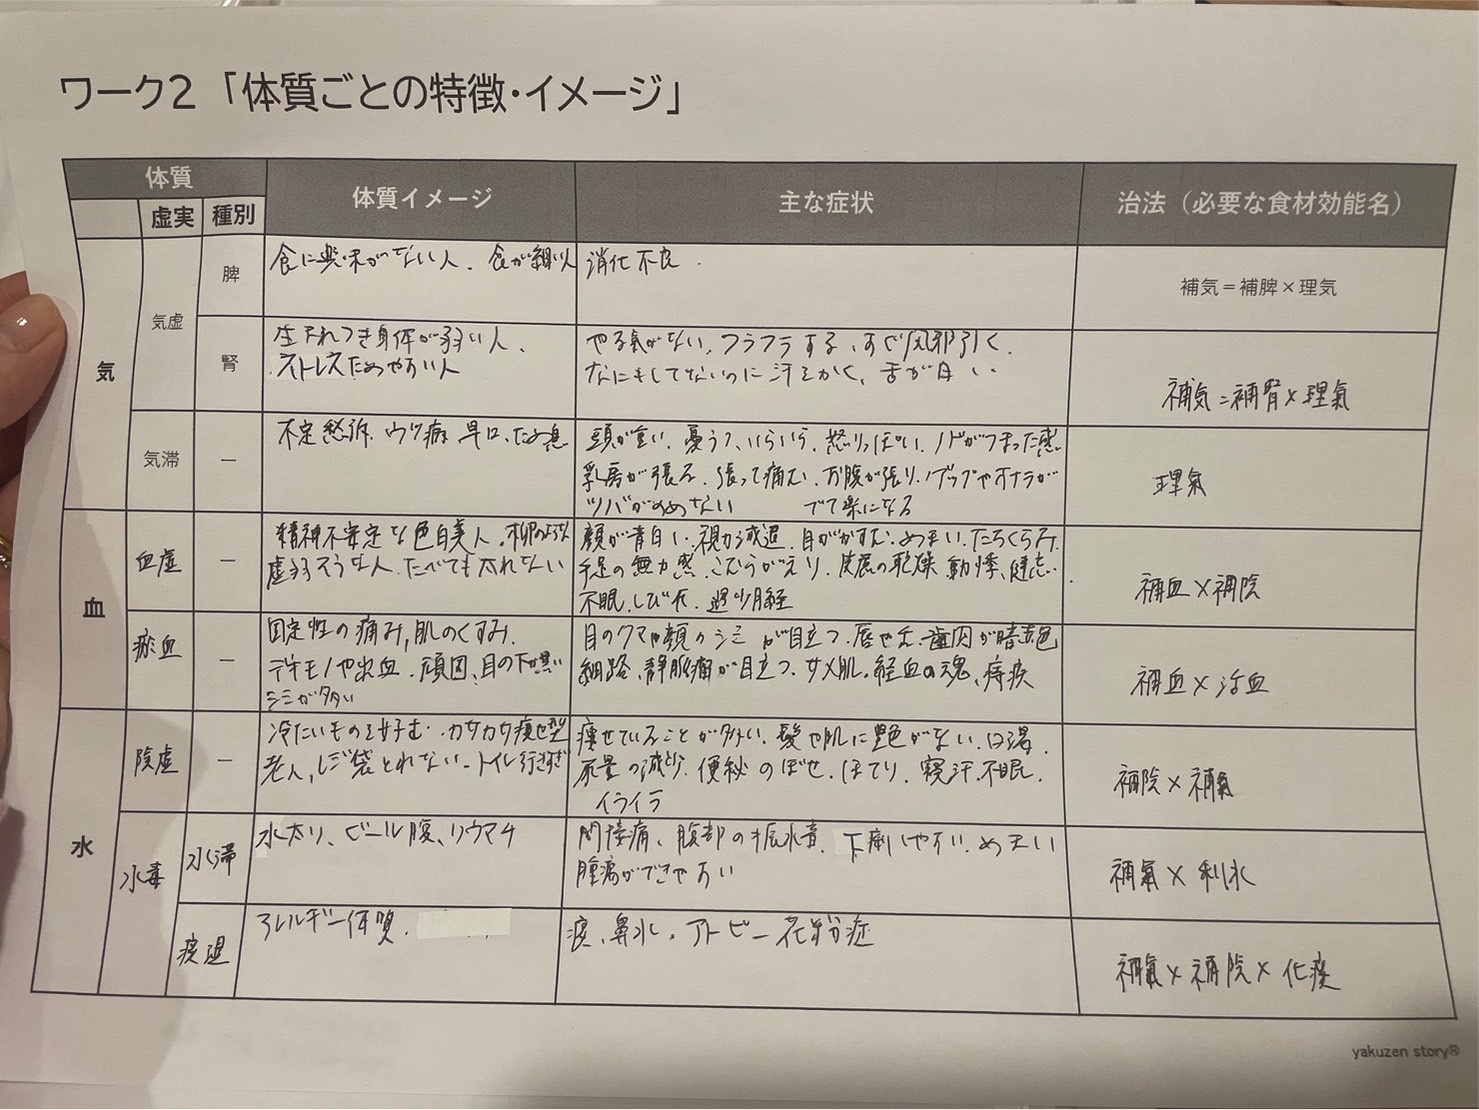 ワーク2「体質ごとの特徴・イメージ」
体質
体質イメージ
主な症状
治法（必要な食材効能名）
虚実
種別
気
気虚
脾
食に興味がない人、食が細い人
消化不良
補気＝補脾×理気
腎
生まれつき身体が弱い人、
ストレスためやすい人
やる気がない、フラフラする、すぐ風邪引く
なにもしてないのに汗をかく、舌が白い
補気=補腎×理氣
気滞
ー
不定愁訴、ウツ病 早口、ため息
頭が重い、憂うつ、いらいら、怒りっぽい、ノドがつまった感
乳房が張る、張って痛む、お腹が張り、ゲップやオナラが
ツバがのめない でて楽になる
理氣
血
血虚
ー
精神不安定な色白美人、柳のような
虚弱そうな人、たべても太れない
顔が青白い、視力減退、目がかすむ、めまい、たちくらみ
手足の無力感、こむらがえり、皮膚の乾燥 動悸、健忘、
不眠、しびれ、過少月経
補血×補陰
瘀血
ー
固定性の痛み,肌のくすみ、
デキモノや出血、頑固、目の下が黒い
シミが多い
目のクマや顔のシミが目立つ、唇や舌、歯肉が暗赤色
細絡、静脈瘤が目立つ、サメ肌、経血の塊、痔疾
補血×活血
水
陰虚
ー
冷たいものを好む、カサカサ痩せ型
老人、レジ袋とれない、トイレ行きすぎ
痩せていることが多い、髪や肌に艶がない、口渇、
尿量の減少、便秘 のぼせ、ほてり、寝汗、不眠、
イライラ
補陰×補氣
水毒
水滞
水太り、ビール腹、リウマチ
関接痛、腹部の振水音、下痢しやすい、めまい
腫瘍ができやすい
補氣×利水
痰湿
アレルギー体質、
痰、鼻水、アトピー 花粉症
補氣×補陰×化痰
yakuzen story®